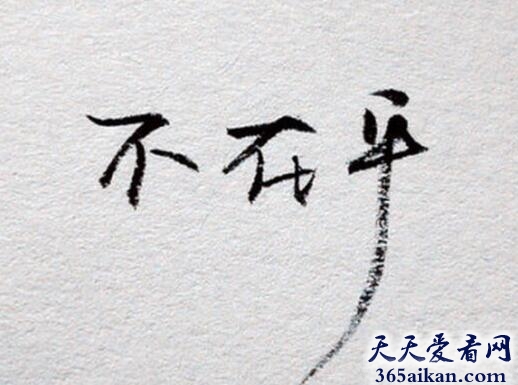 不在乎
天天爱看网
365aikan.com